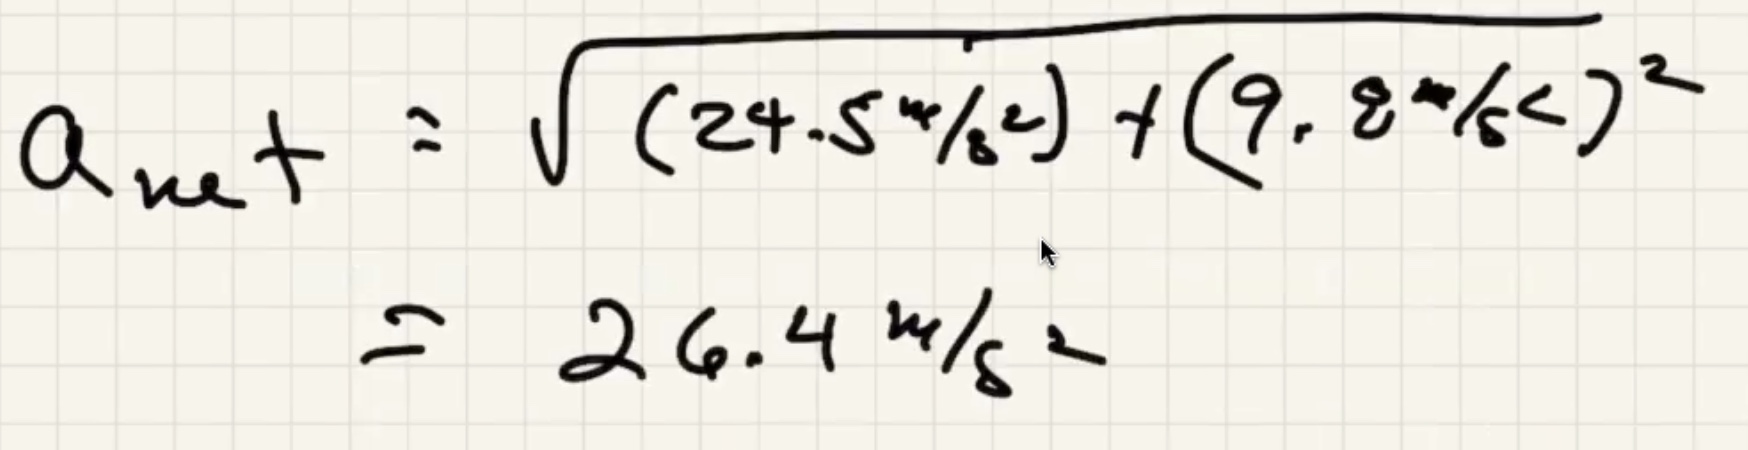 a_net = √((24.5 m/s²) + (9.8 m/s²)²)
= 26.4 m/s²